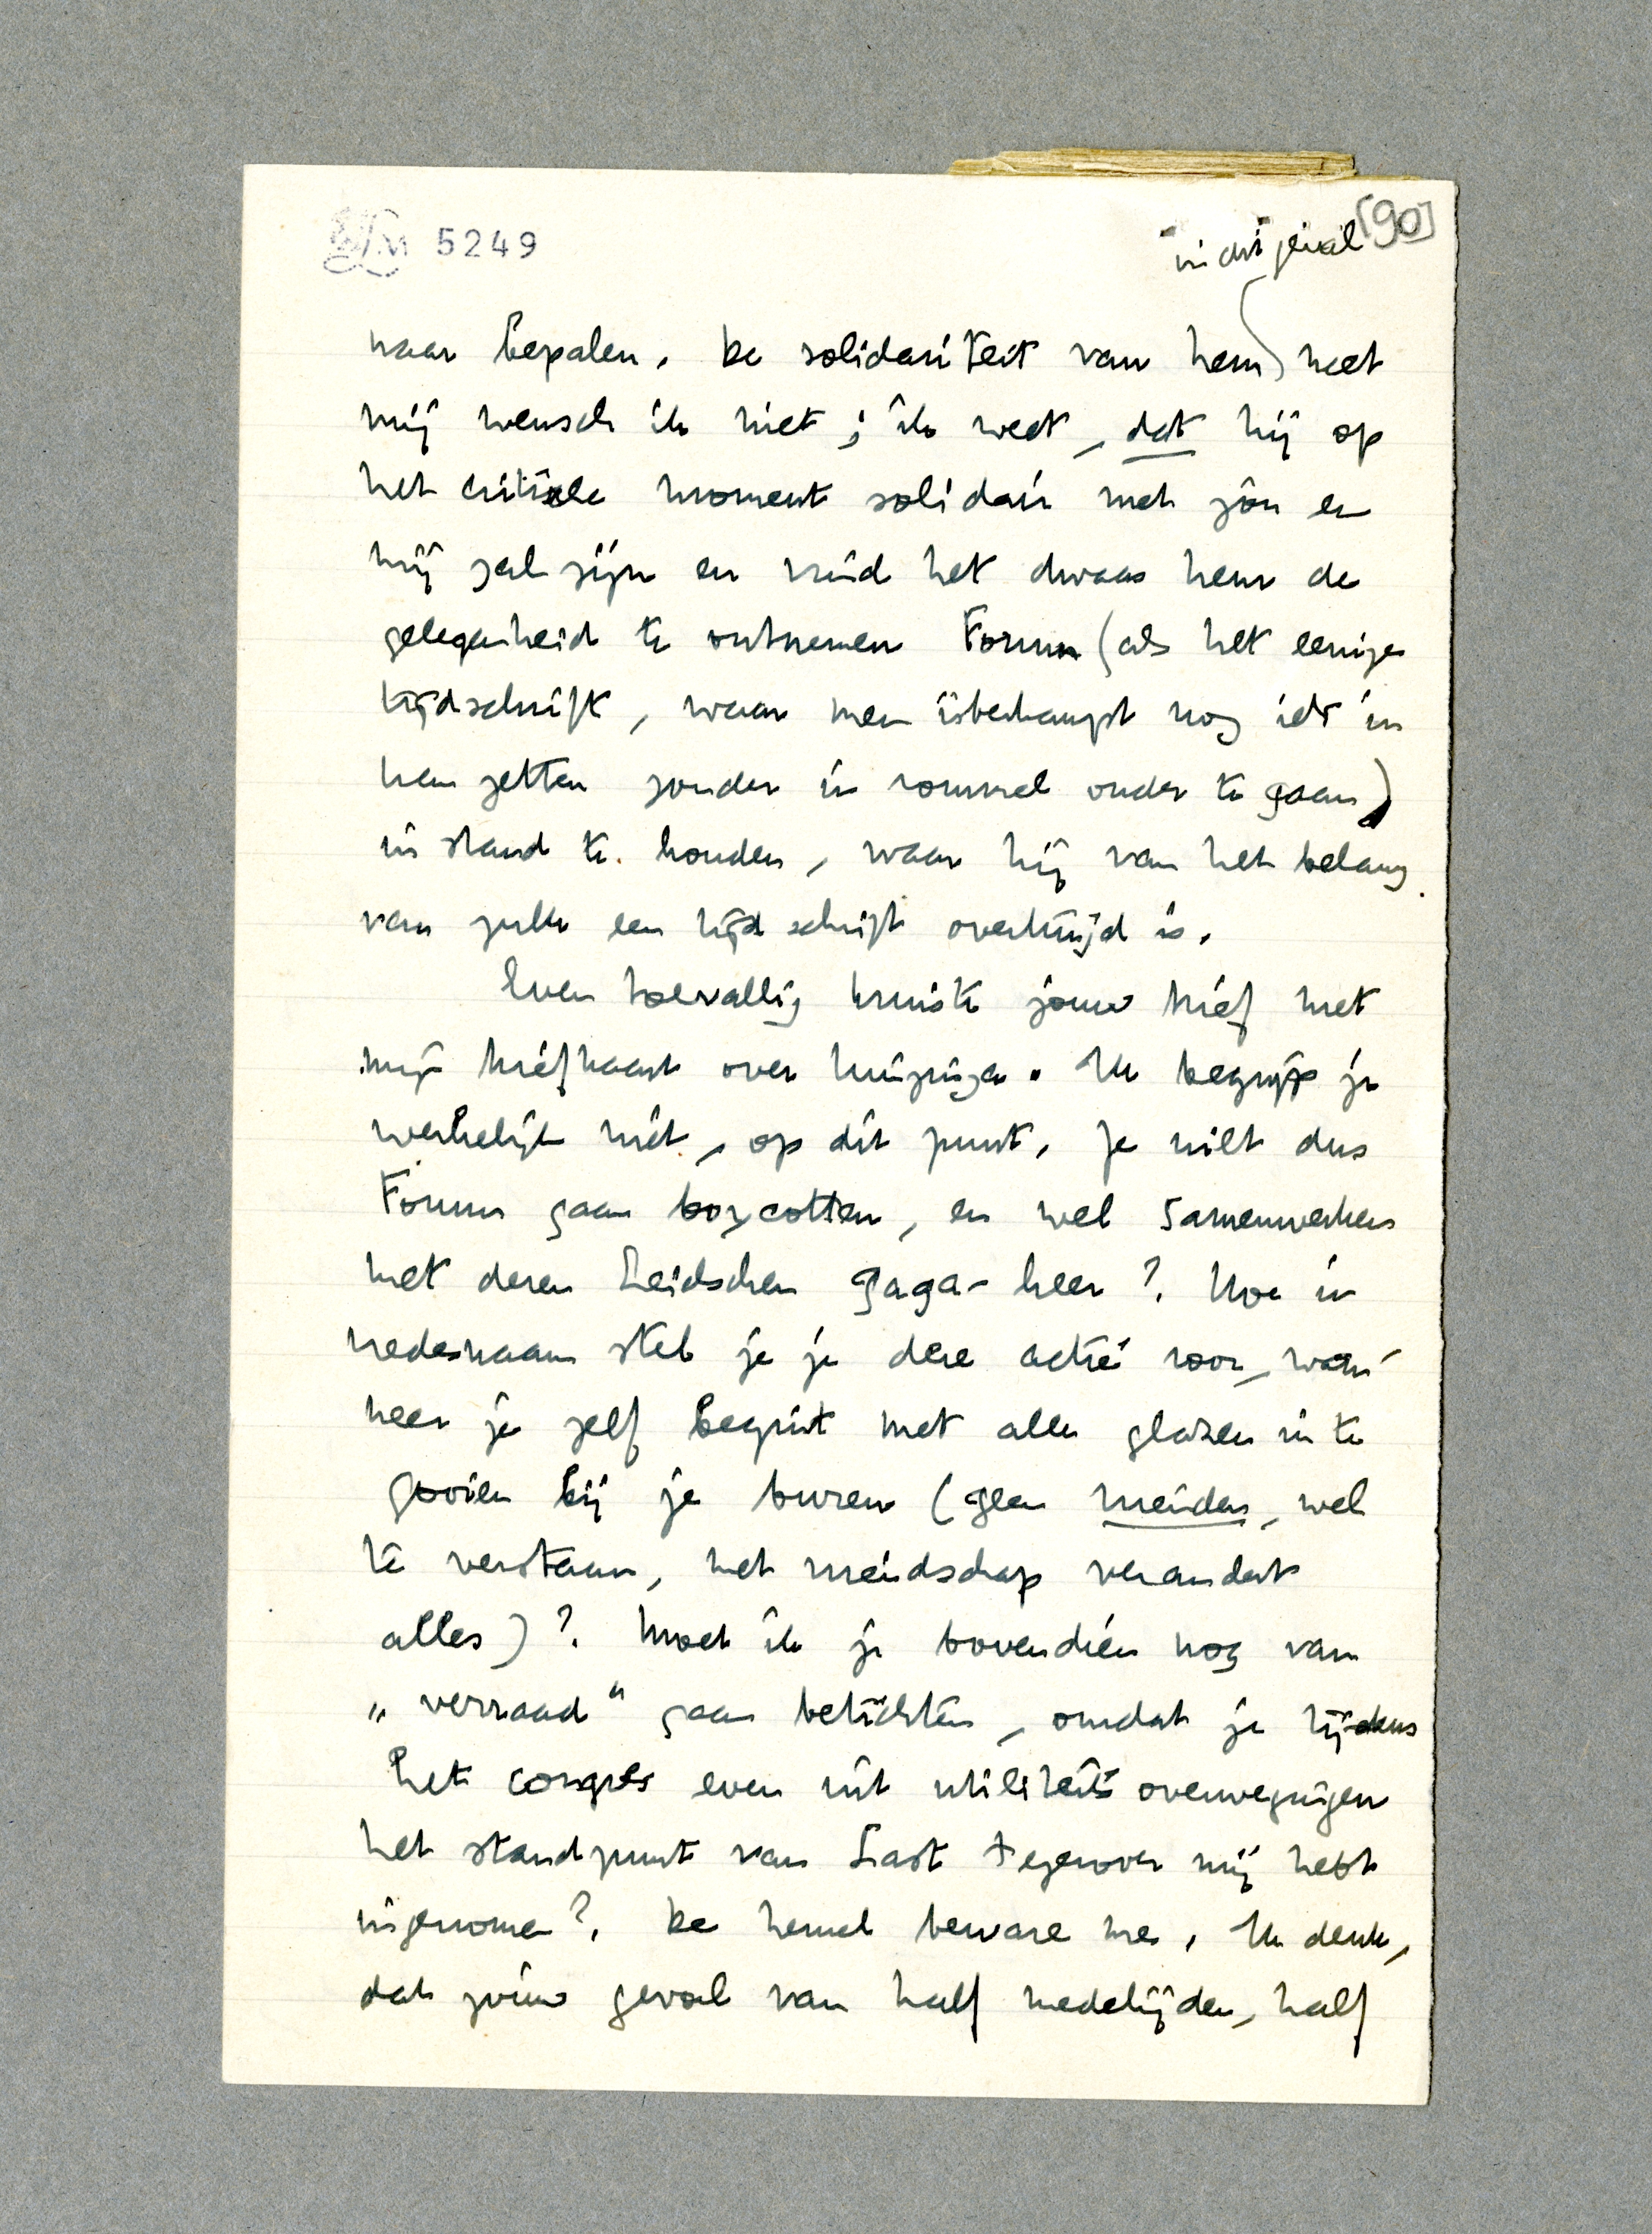 LM 5249
[90]
in dit geval
naar bepalen. De solidariteit van hem met
mij wensch ik niet; ik weet, dat hij op
het critieke moment solidair met jou en
mij zal zijn en vind het dwaas hem de
gelegenheid te ontnemen Forum (als het eenige
tijdschrift, waar men überhaupt nog iets in
kan zetten zonder in rommel onder te gaan)
in stand te houden, waar hij van het belang
van zulk een tijdschrift overtuigd is.
Even toevallig kruiste jouw brief met
mijn briefkaart over Huizinga. Ik begrijp je
werkelijk niet, op dit punt. Je wilt dus
Forum gaan boycotten, en wel samenwerken
met dezen Leidschen gaga-heer? Hoe in
vredesnaam stel je je deze actie voor, wan-
neer je zelf begint met alle glazen in te
gooien bij je buren (geen vrienden, wel
te verstaan, het vriendschap verandert
alles)? Moet ik je bovendien nog van
„verraad" gaan betichten, omdat je tijdens
het congres even uit utiliteitsoverwegingen
het standpunt van Last tegenover mij hebt
ingenomen? De hemel beware me. Ik denk,
dat jouw gevoel van half medelijden, half